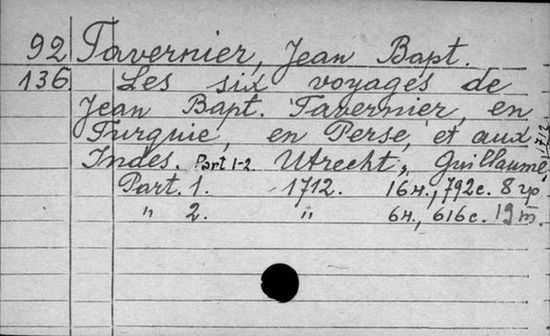 92 Tavernier, Jean Bapt.
136 Les six voyages de
Jean Bapt. Tavernier, en
Turquie, en Perse, et aux
Indes. Part 1-2. Utrecht, Guillaume, 1712.
Part. 1. 1712. 16н., 792с. 8 гр
" 2. " 6н., 616с. 19 m.